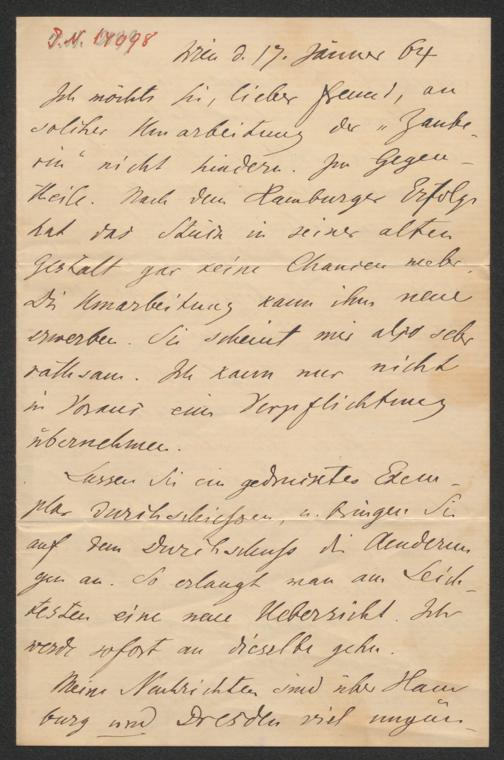 J.N. 17098
Wien d. 17. Jänner 64
Ich möchte Sie, lieber Freund, an
solcher Umarbeitung der „Zaube-
rin" nicht hindern. Im Gegen-
theile. Nach dem Hamburger Erfolge
hat das Stück in seiner alten
Gestalt gar keine Chancen mehr.
Die Umarbeitung kann ihm neue
erwerben. Sie scheint mir also sehr
rathsam. Ich kann nur nicht
in Voraus eine Verpflichtung
übernehmen.
Lassen Sie ein gedrucktes Exem-
plar durchschießen, u. bringen Sie
auf dem Durchschuß die Aenderun
gen an. So erlangt man am Leich-
testen eine neue Uebersicht. Ich
werde sofort an dieselbe gehn.
Meine Nachrichten sind über Ham
burg und Dresden viel ungün-